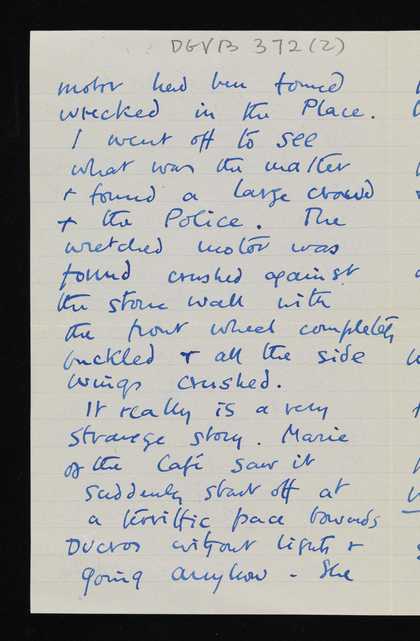 DGVB 372(2)
motor had been found
wrecked in the Place.
I went off to see
what was the matter
+ found a large crowd
+ the Police. The
wretched motor was
found crushed against
the stone wall with
the front wheel completely
buckled + all the side
wings crushed.
It really is a very
strange story. Marie
of the Café saw it
suddenly start off at
a terrific pace towards
Ducros without lights +
going anyhow - She